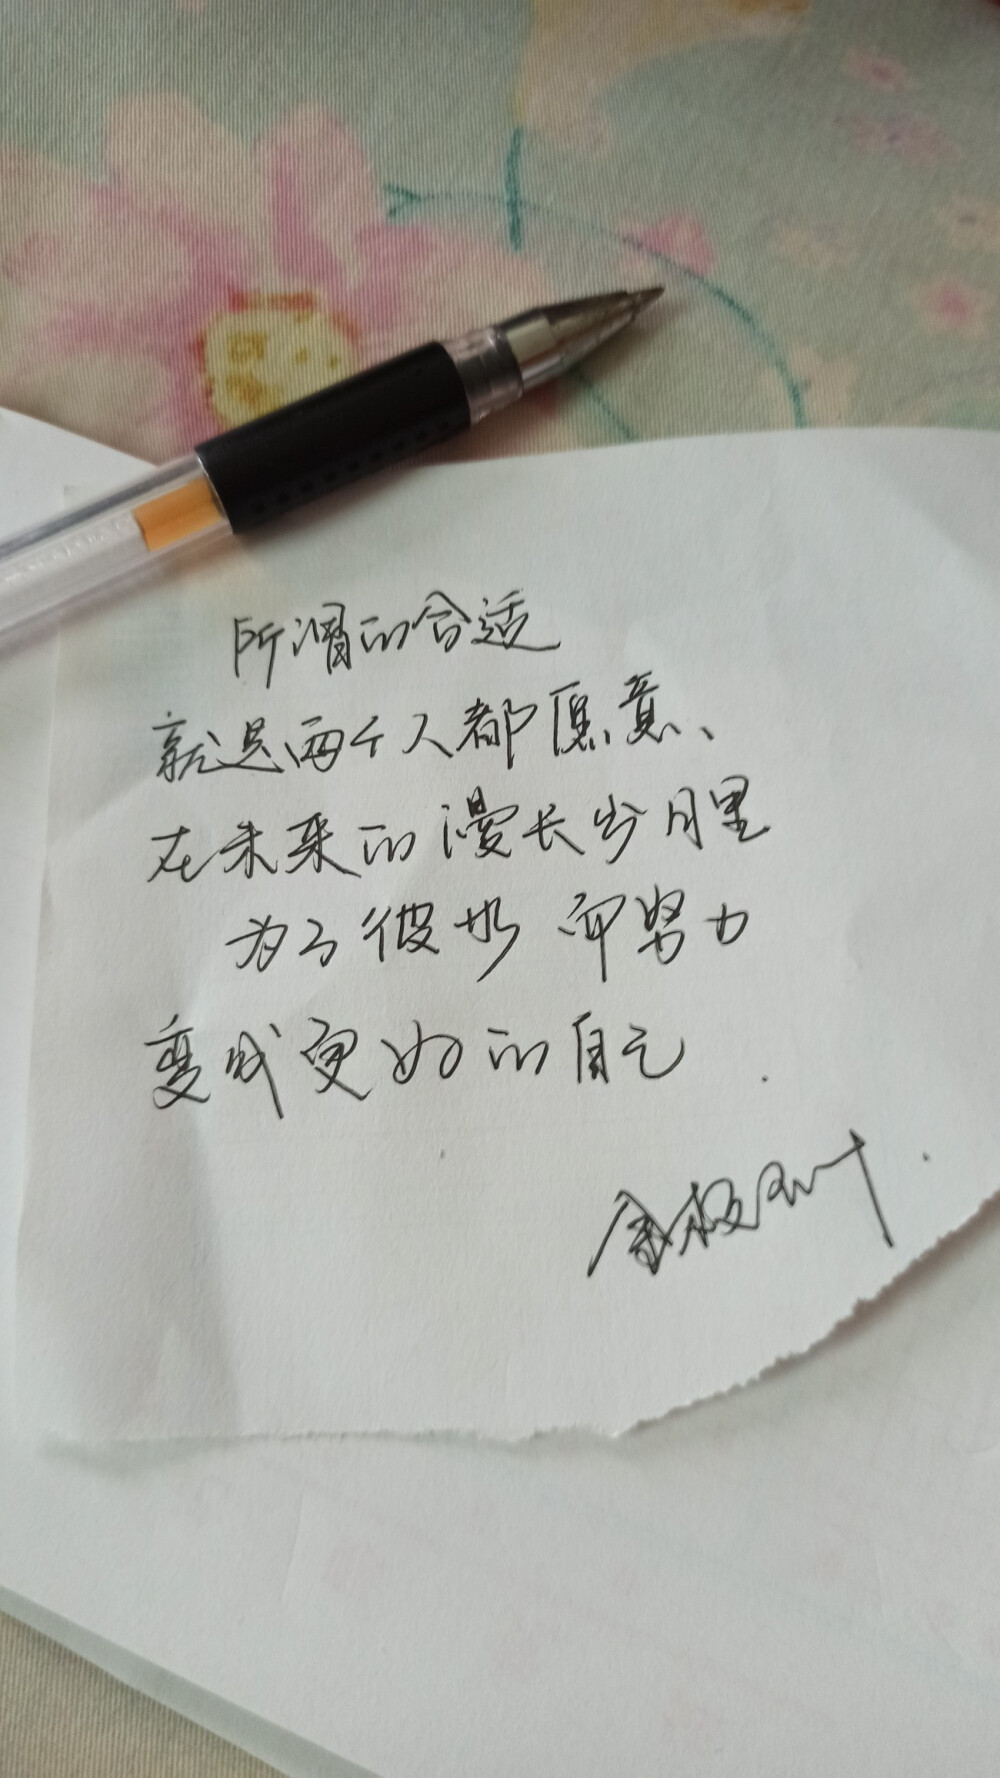 所谓的合适
就是两个人都愿意、
在未来的漫长岁月里
为了彼此而努力
变成更好的自己